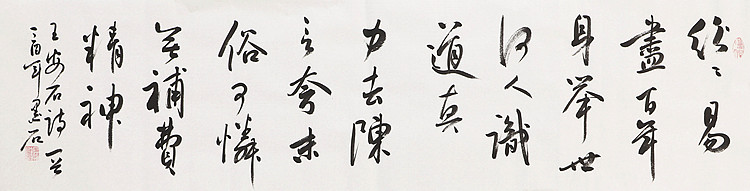 紛〻易
盡百年
身举世
何人識
道真
力去陳
言夸末
俗可憐
无補費
精神
王安石詩
年墨石